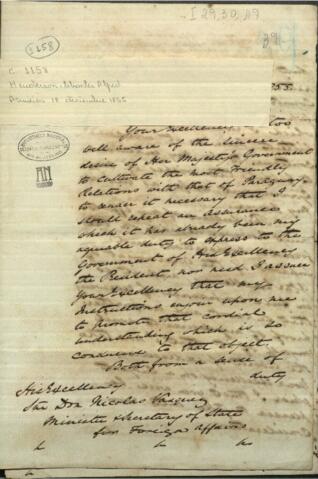 I 29,30,29
5158
C 1158
Henderson, Charles Alfred
Asunción 18 diciembre 1855
55.
Your Excellency is too
well aware of the sincere
desire of Her Majesty's Government
to cultivate the most Friendly
Relations with that of Paraguay
to render it necessary that I
should repeat an assurance
which it has already been my
agreeable duty to express to the
Government of His Excellency
the President, nor need I assure
Your Excellency that my
Instructions enjoin upon me
to promote that cordial
understanding which is so
conducive to that object.
Both from a sense of
duty
His Excellency
Señor Don Nicolas Vasquez
Minister & Secretary of State
for Foreign Affairs